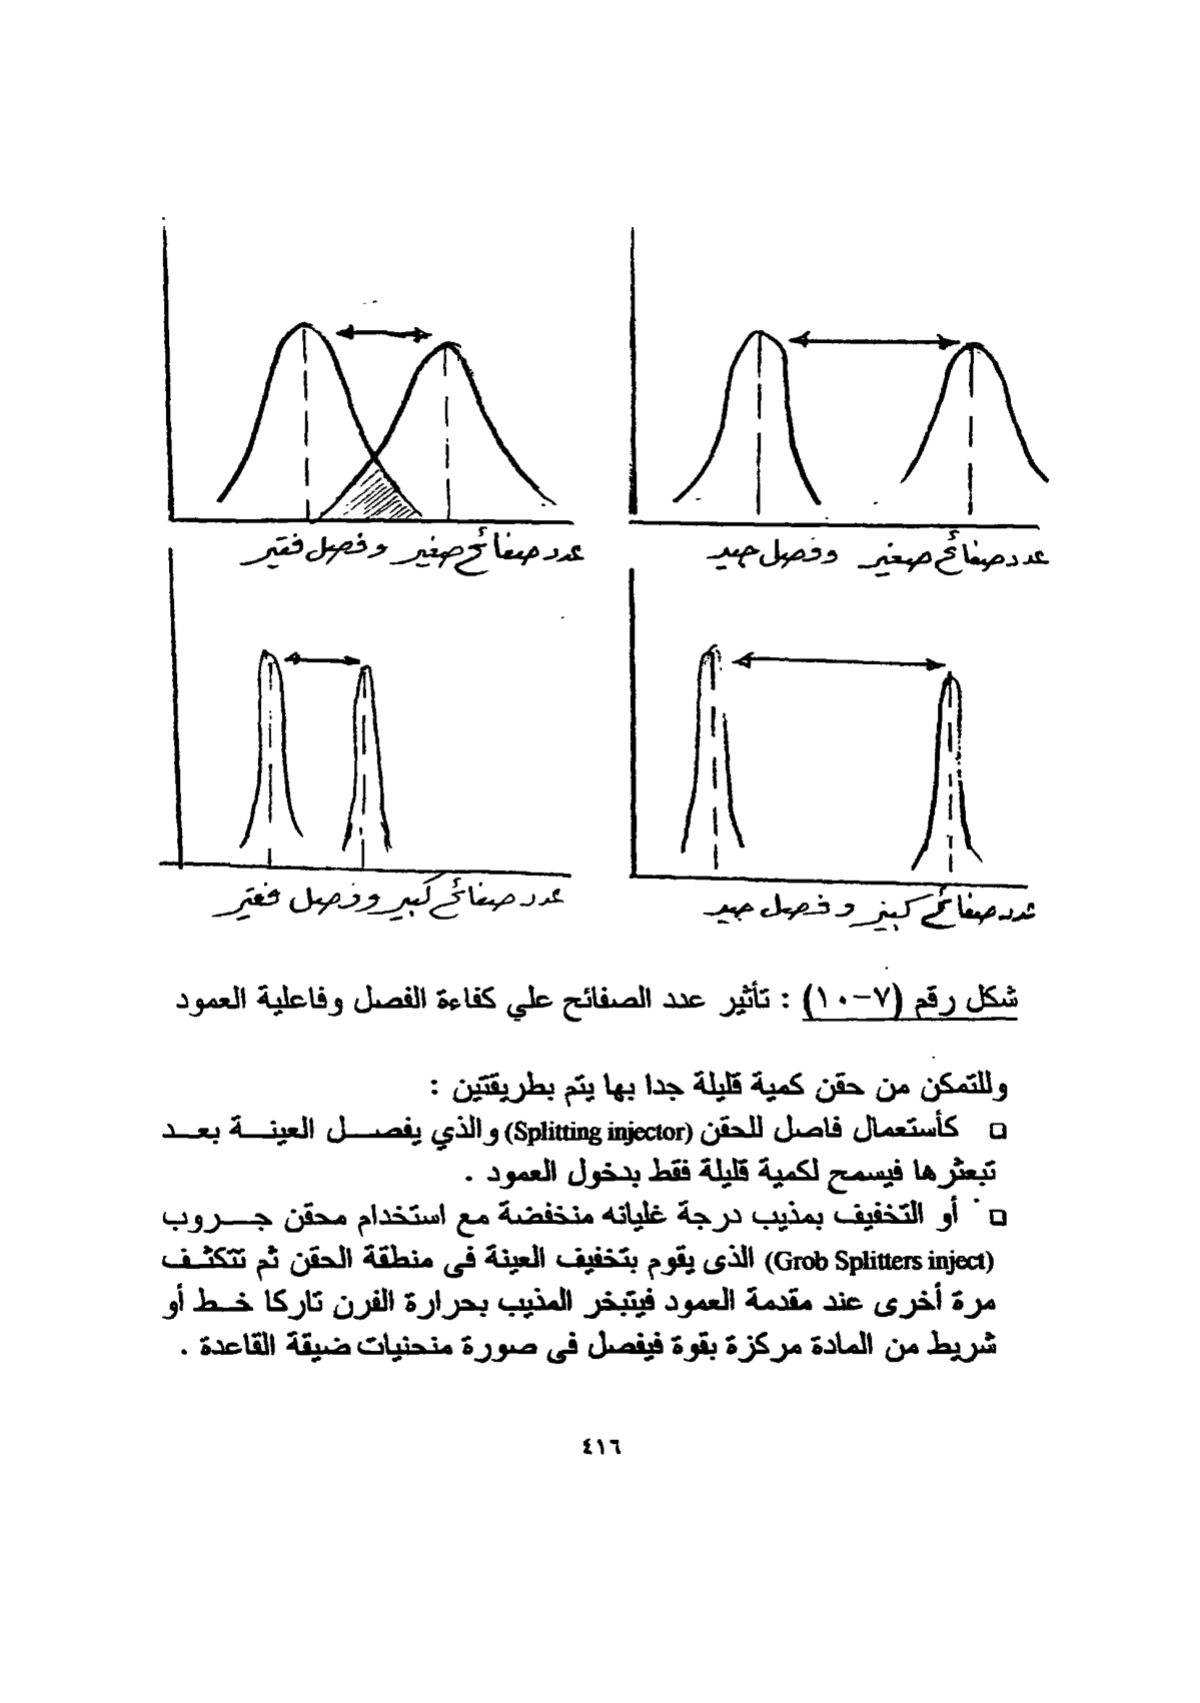 عدد صفائح صغير وفصل فقير
عدد صفائح صغير وفصل جيد
عدد صفائح كبير وفصل فقير
عدد صفائح كبير وفصل جيد
شكل رقم (٧-١٠) : تأثير عدد الصفائح علي كفاءة الفصل وفاعلية العمود
وللتمكن من حقن كمية قليلة جدا بها يتم بطريقتين :
□ كأستعمال فاصل للحقن (Splitting injector) والذي يفصل العينة بعد
تبعثرها فيسمح لكمية قليلة فقط بدخول العمود .
□ أو التخفيف بمذيب درجة غليانه منخفضة مع استخدام محقن جروب
(Grob Splitters inject) الذى يقوم بتخفيف العينة فى منطقة الحقن ثم تتكثف
مرة أخرى عند مقدمة العمود فيتبخر المذيب بحرارة الفرن تاركا خط أو
شريط من المادة مركزة بقوة فيفصل فى صورة منحنيات ضيقة القاعدة .
٤١٦